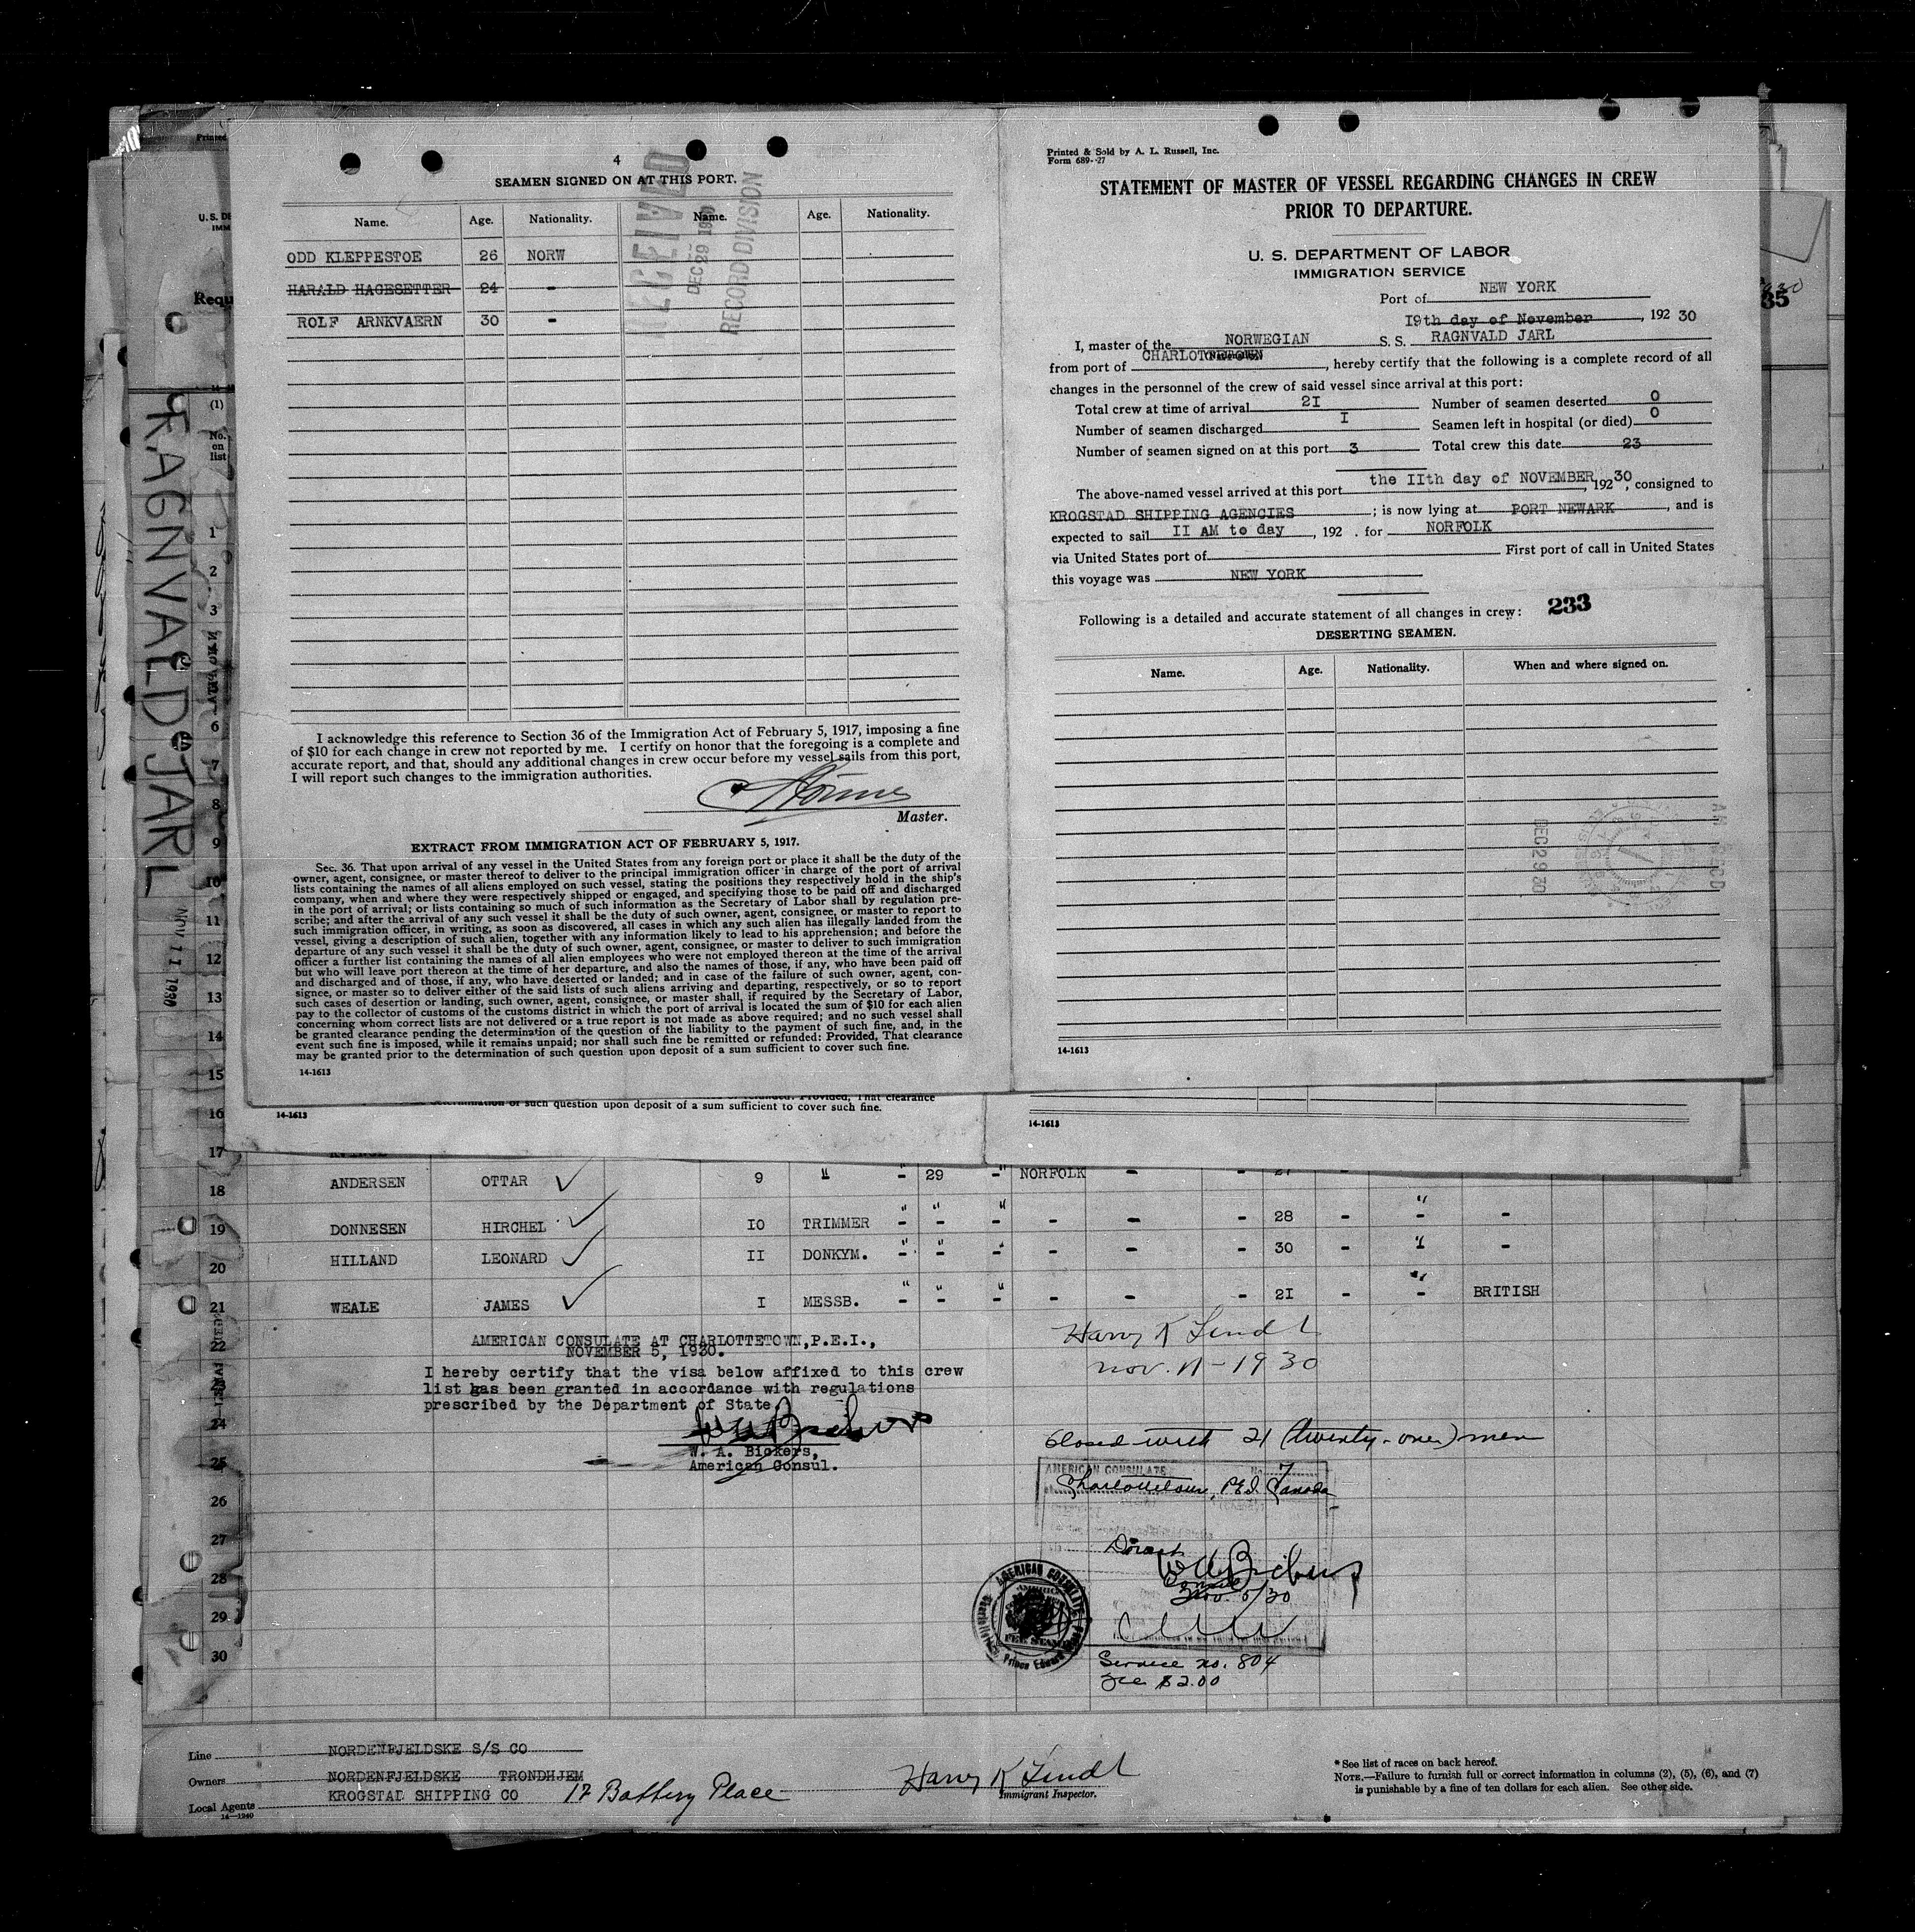 4
SEAMEN SIGNED ON AT THIS PORT.
Name. Age. Nationality. Name. Age. Nationality.
ODD KLEPPESTOE 26 NORW
HARALD HAGESETTER 24 -
ROLF ARNKVAERN 30 -
RECEIVED
DEC 29 1930
RECORD DIVISION
I acknowledge this reference to Section 36 of the Immigration Act of February 5, 1917, imposing a fine
of $10 for each change in crew not reported by me. I certify on honor that the foregoing is a complete and
accurate report, and that, should any additional changes in crew occur before my vessel sails from this port,
I will report such changes to the immigration authorities.
Master.
EXTRACT FROM IMMIGRATION ACT OF FEBRUARY 5, 1917.
Sec. 36. That upon arrival of any vessel in the United States from any foreign port or place it shall be the duty of the
owner, agent, consignee, or master thereof to deliver to the principal immigration officer in charge of the port of arrival
lists containing the names of all aliens employed on such vessel, stating the positions they respectively hold in the ship's
company, when and where they were respectively shipped or engaged, and specifying those to be paid off and discharged
in the port of arrival; or lists containing so much of such information as the Secretary of Labor shall by regulation pre-
scribe; and after the arrival of any such vessel it shall be the duty of such owner, agent, consignee, or master to report to
such immigration officer, in writing, as soon as discovered, all cases in which any such alien has illegally landed from the
vessel, giving a description of such alien, together with any information likely to lead to his apprehension; and before the
departure of any such vessel it shall be the duty of such owner, agent, consignee, or master to deliver to such immigration
officer a further list containing the names of all alien employees who were not employed thereon at the time of the arrival
but who will leave port thereon at the time of her departure, and also the names of those, if any, who have been paid off
and discharged and of those, if any, who have deserted or landed; and in case of the failure of such owner, agent, con-
signee, or master so to deliver either of the said lists of such aliens arriving and departing, respectively, or so to report
such cases of desertion or landing, such owner, agent, consignee, or master shall, if required by the Secretary of Labor,
pay to the collector of customs of the customs district in which the port of arrival is located the sum of $10 for each alien
concerning whom correct lists are not delivered or a true report is not made as above required; and no such vessel shall
be granted clearance pending the determination of the question of the liability to the payment of such fine, and, in the
event such fine is imposed, while it remains unpaid; nor shall such fine be remitted or refunded: Provided, That clearance
may be granted prior to the determination of such question upon deposit of a sum sufficient to cover such fine.
14-1613
Printed & Sold by A. L. Russell, Inc.
Form 689--27
STATEMENT OF MASTER OF VESSEL REGARDING CHANGES IN CREW
PRIOR TO DEPARTURE.
U. S. DEPARTMENT OF LABOR
IMMIGRATION SERVICE
Port of NEW YORK
I9th day of November, 192 30
I, master of the NORWEGIAN S. S. RAGNVALD JARL
from port of CHARLOTTETOWN, hereby certify that the following is a complete record of all
changes in the personnel of the crew of said vessel since arrival at this port:
Total crew at time of arrival 2I Number of seamen deserted 0
Number of seamen discharged I Seamen left in hospital (or died) 0
Number of seamen signed on at this port 3 Total crew this date 23
The above-named vessel arrived at this port the IIth day of NOVEMBER, 192 30, consigned to
KROGSTAD SHIPPING AGENCIES; is now lying at PORT NEWARK, and is
expected to sail II AM to day, 192 . for NORFOLK
via United States port of First port of call in United States
this voyage was NEW YORK
Following is a detailed and accurate statement of all changes in crew: 233
DESERTING SEAMEN.
Name. Age. Nationality. When and where signed on.
DEC 29 30
14-1613
Printed
U. S. DE
IMM
Requ
35
RAGNVALD JARL
NOV 11 1930
(1)
No.
on
list
1
2
3
6
7
8
9
10
11
12
13
14
15
16
17
14-1613
of such question upon deposit of a sum sufficient to cover such fine.
14-1613
18 ANDERSEN OTTAR 9 " - 29 -" NORFOLK - - 27
19 DONNESEN HIRCHEL IO TRIMMER - - - - - - 28 - - -
20 HILLAND LEONARD II DONKYM. - - - - - - 30 - - -
21 WEALE JAMES I MESSB. - - - - - - 2I - - BRITISH
22
23
24
25
26
27
28
29
30
AMERICAN CONSULATE AT CHARLOTTETOWN,P.E.I.,
NOVEMBER 5, 1930.
I hereby certify that the visa below affixed to this crew
list has been granted in accordance with regulations
prescribed by the Department of State
W. A. Bickers,
American Consul.
Harry K Lindt
Nov. 11-1930
Closed with 21 (twenty-one) men
AMERICAN CONSULATE No. 7
Charlottetown, P.E.I. Canada
W A Bickers
Consul
Nov. 5/30
AMERICAN CONSULATE
Charlottetown, Prince Edward
FEE STAMP
Service no. 804
Fee $2.00
Line NORDENFJELDSKE S/S CO
Owners NORDENFJELDSKE TRONDHJEM
Local Agents KROGSTAD SHIPPING CO 17 Battery Place
14-1240
Harry K Lindt
Immigrant Inspector.
* See list of races on back hereof.
NOTE.—Failure to furnish full or correct information in columns (2), (5), (6), and (7)
is punishable by a fine of ten dollars for each alien. See other side.